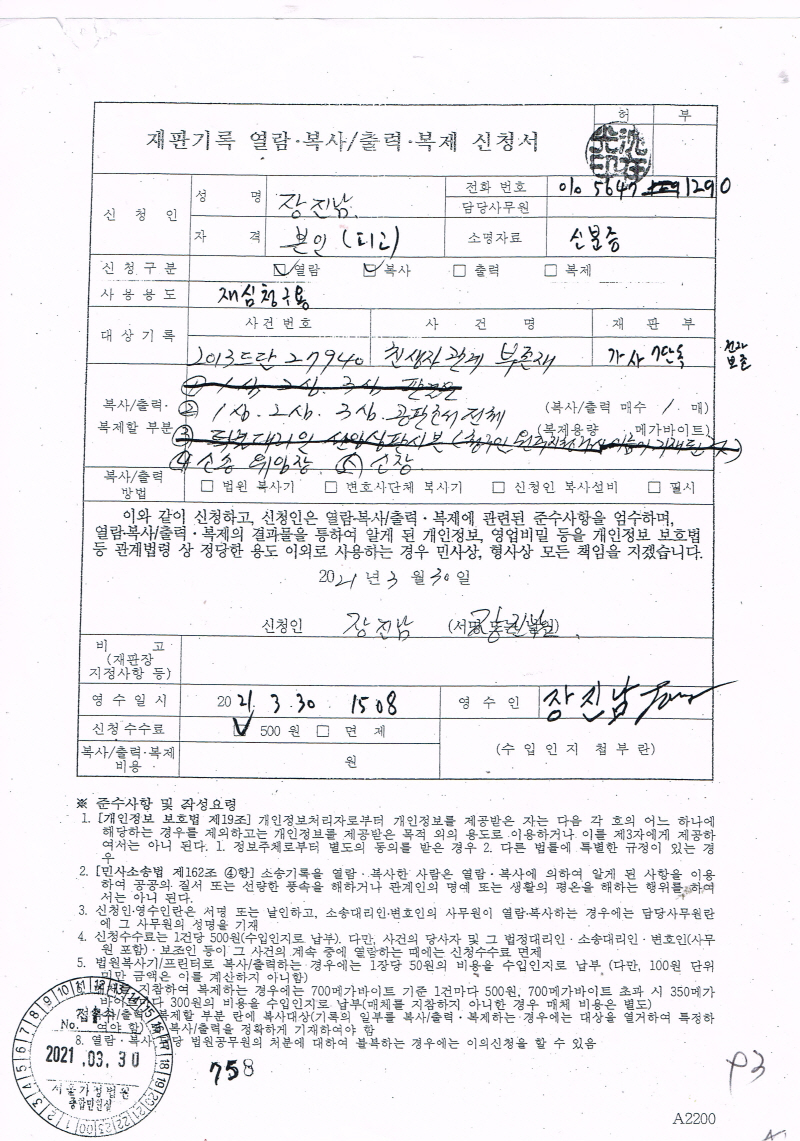 허 부
재판기록 열람·복사/출력·복제 신청서
신청인 성명 장진남 전화 번호 010 5647 1290
담당사무원
자격 본인 (피고) 소명자료 신분증
신청구분 ☑열람 ☑복사 □ 출력 □ 복제
사용용도 재심청구용
대상기록 사건번호 사건명 재판부
2013드단 27940 친생자관계 부존재 가사 7단독 전자 보존
복사/출력· 복제할 부분
① 1심. 2심. 3심 판결문
② 1심. 2심. 3심. 공판조서 전체 (복사/출력 매수 / 매)
(복제용량 메가바이트)
④ 소송 위임장. ⑤ 소장
복사/출력 방법 □ 법원 복사기 □ 변호사단체 복사기 □ 신청인 복사설비 □ 필시
이와 같이 신청하고, 신청인은 열람·복사/출력·복제에 관련된 준수사항을 엄수하며,
열람·복사/출력·복제의 결과물을 통하여 알게 된 개인정보, 영업비밀 등을 개인정보 보호법
등 관계법령 상 정당한 용도 이외로 사용하는 경우 민사상, 형사상 모든 책임을 지겠습니다.
2021년 3월 30일
신청인 장진남 (서명 장진남
비고
(재판장
지정사항 등)
영수일시 2021. 3. 30 1508 영수인 장진남
신청수수료 ☑ 500 원 □ 면 제
(수입인지 첩부란)
복사/출력·복제 비용 원
※ 준수사항 및 작성요령
1. [개인정보 보호법 제19조] 개인정보처리자로부터 개인정보를 제공받은 자는 다음 각 호의 어느 하나에
해당하는 경우를 제외하고는 개인정보를 제공받은 목적 외의 용도로 이용하거나 이를 제3자에게 제공하
여서는 아니 된다. 1. 정보주체로부터 별도의 동의를 받은 경우 2. 다른 법률에 특별한 규정이 있는 경
우
2. [민사소송법 제162조 ④항] 소송기록을 열람·복사한 사람은 열람·복사에 의하여 알게 된 사항을 이용
하여 공공의 질서 또는 선량한 풍속을 해하거나 관계인의 명예 또는 생활의 평온을 해하는 행위를 하여
서는 아니 된다.
3. 신청인·영수인란은 서명 또는 날인하고, 소송대리인·변호인의 사무원이 열람·복사하는 경우에는 담당사무원란
에 그 사무원의 성명을 기재
4. 신청수수료는 1건당 500원(수입인지로 납부). 다만, 사건의 당사자 및 그 법정대리인·소송대리인·변호인(사무
원 포함)·보조인 등이 그 사건의 계속 중에 열람하는 때에는 신청수수료 면제
5. 법원복사기/프린터로 복사/출력하는 경우에는 1장당 50원의 비용을 수입인지로 납부 (다만, 100원 단위
미만 금액은 이를 계산하지 아니함)
지참하여 복제하는 경우에는 700메가바이트 기준 1건마다 500원, 700메가바이트 초과 시 350메가
바이트마다 300원의 비용을 수입인지로 납부(매체를 지참하지 아니한 경우 매체 비용은 별도)
복제할 부분 란에 복사대상(기록의 일부를 복사/출력·복제하는 경우에는 대상을 열거하여 특정하
여야 함) 복사/출력을 정확하게 기재하여야 함
8. 열람·복사 담당 법원공무원의 처분에 대하여 불복하는 경우에는 이의신청을 할 수 있음
접수
No.
2021. 03. 30
서울가정법원
종합민원실
758
p3
A2200